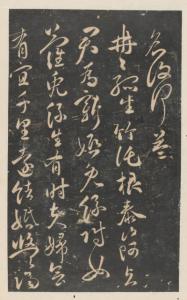 冉〻孤生竹託根泰山阿与
君為新婚兔絲附女
蘿兔絲生有時夫婦會
有宜千里遠結婚悠〻隔